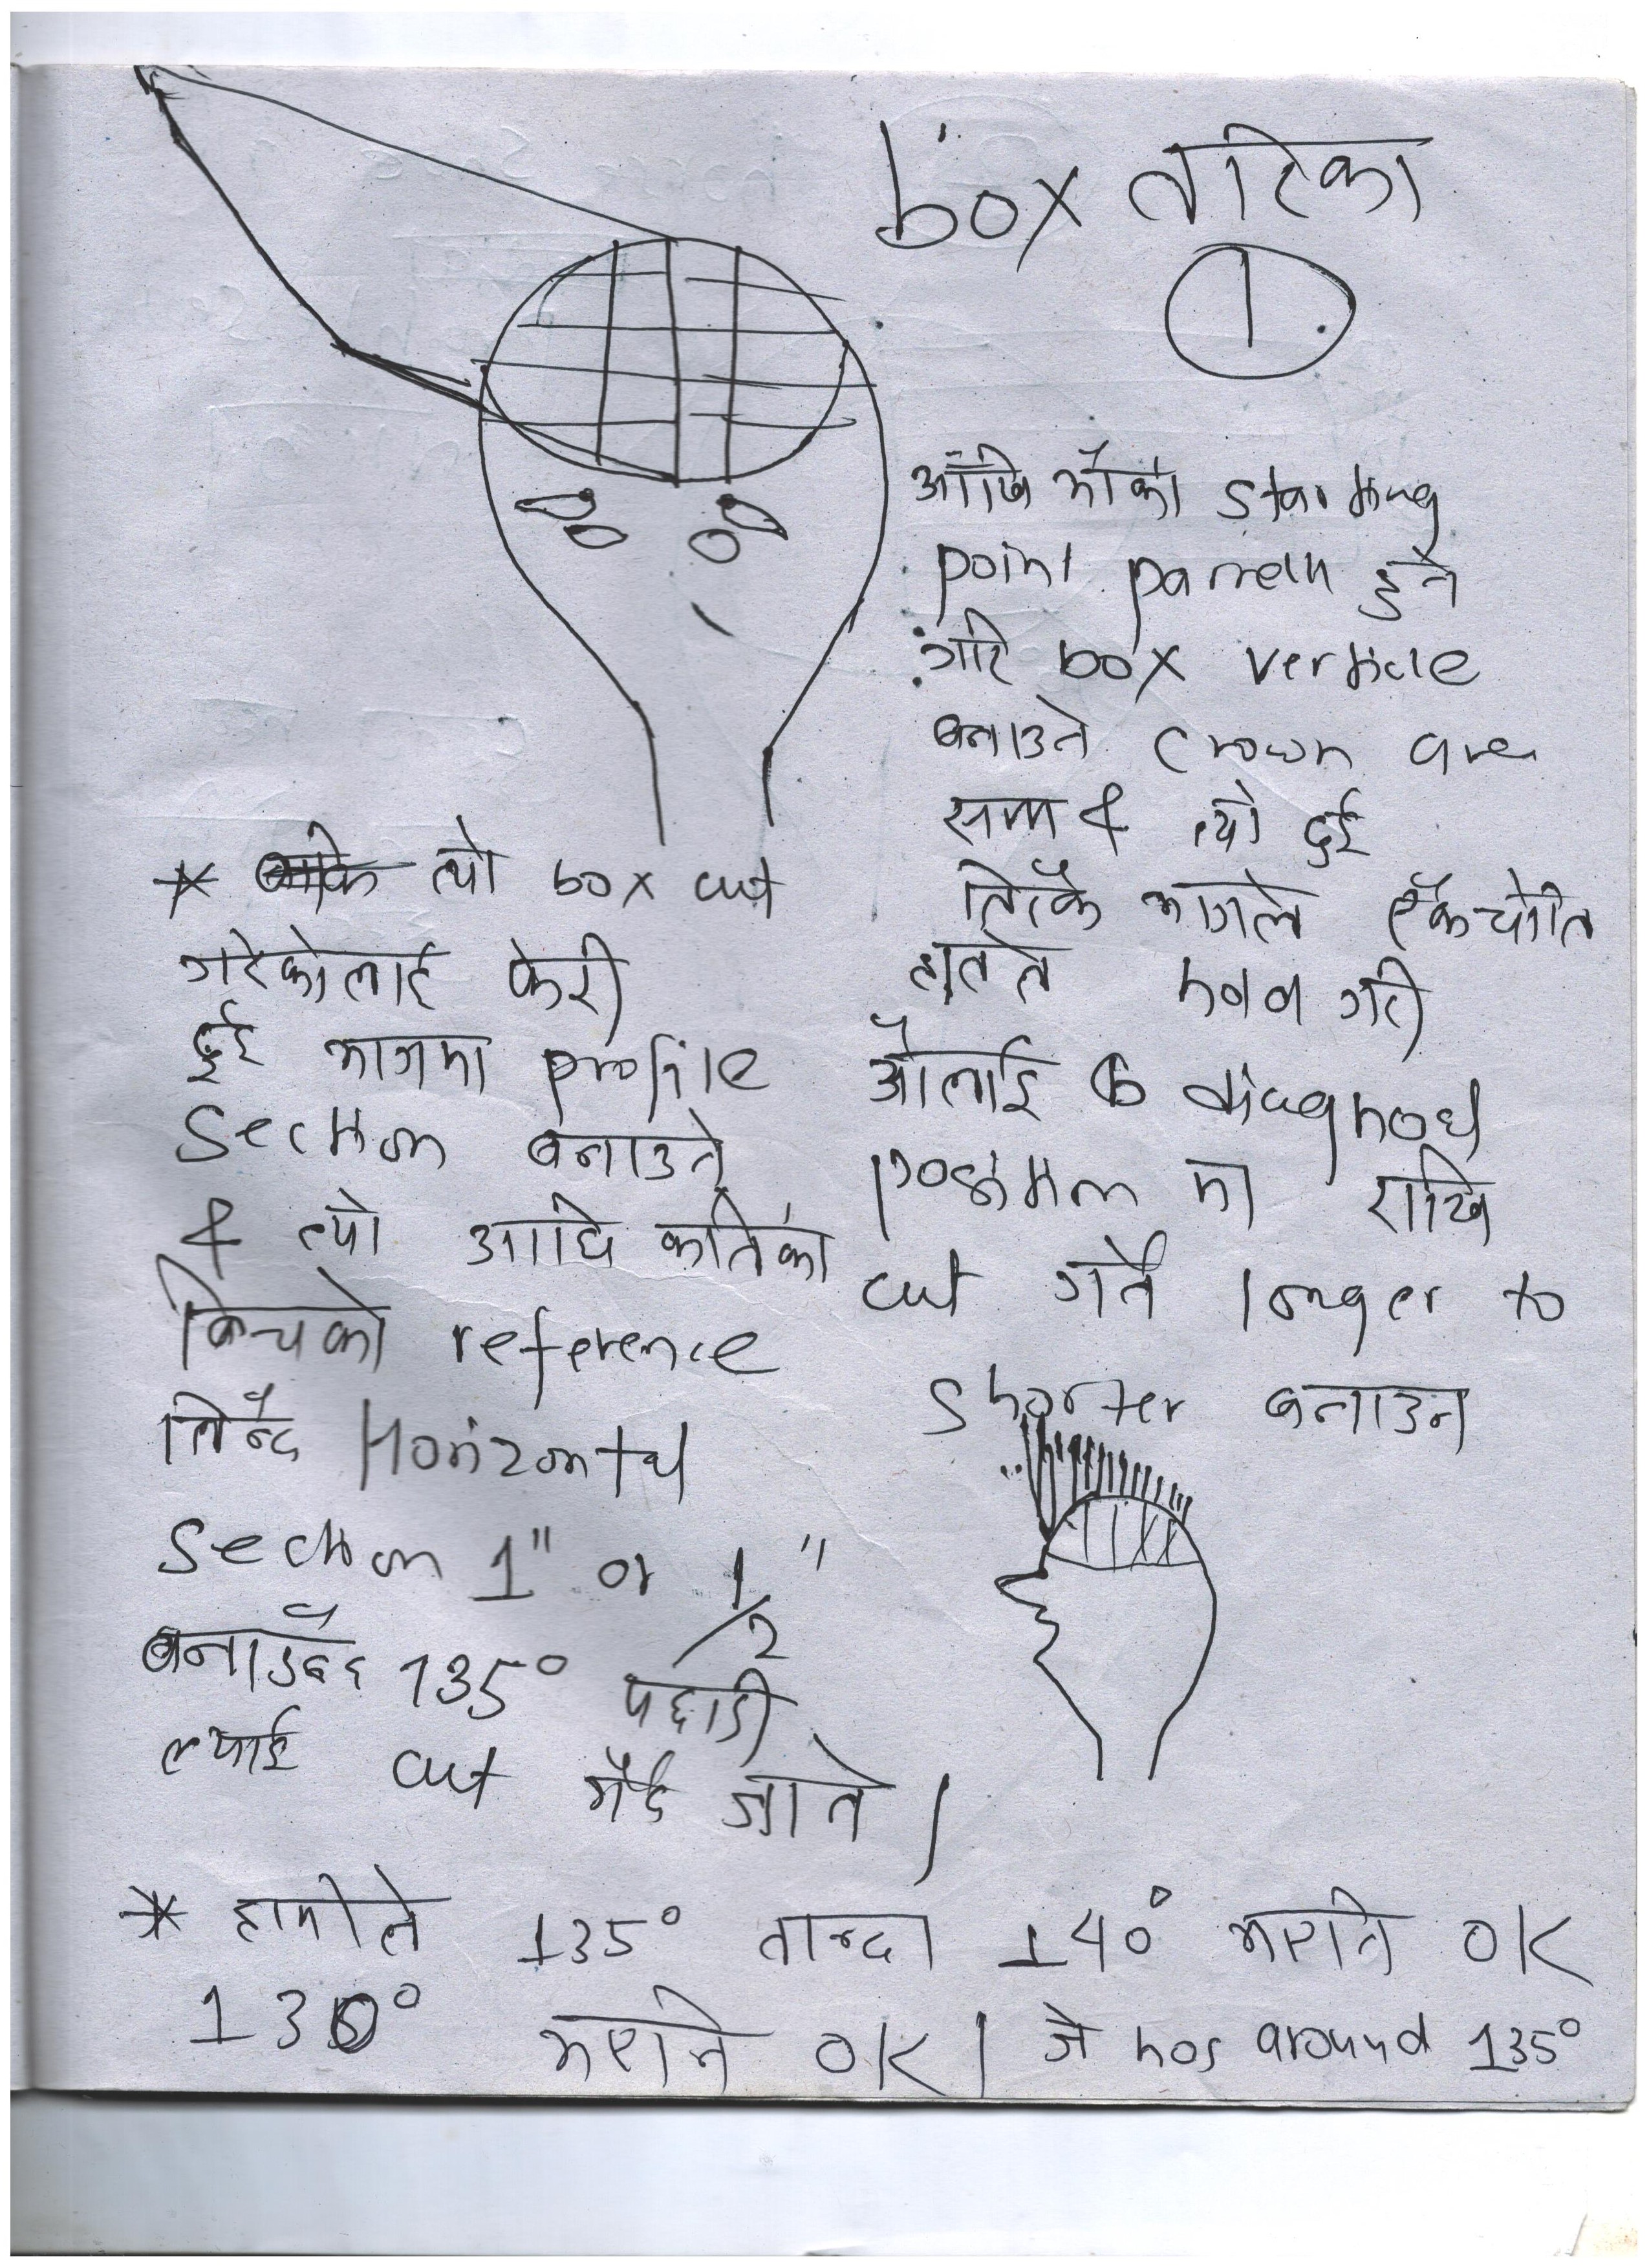 box तरिका
1
आँखि भौंको starting
point parrelh हुने
गरि box verticle
बनाउने crown are
सम्म & त्यो दुई
तिरकै भागले एकचोति
गरी
औलाई diagnoal
position मा राखि
cut गर्ने longer to
shorter बनाउन
* त्यो box cut
गरेकोलाई फेरी
दुई भागमा profile
section बनाउने
& त्यो अाघि कतिको
बिचको reference
लिँन्दै Horizontal
section 1" or 1/2"
बनाउँदै 135° पछाडी
ल्याई cut गर्दै जाने।
* हामीले 135° तान्दा 140° भएनि OK
130° भएनि OK। जे hos around 135°